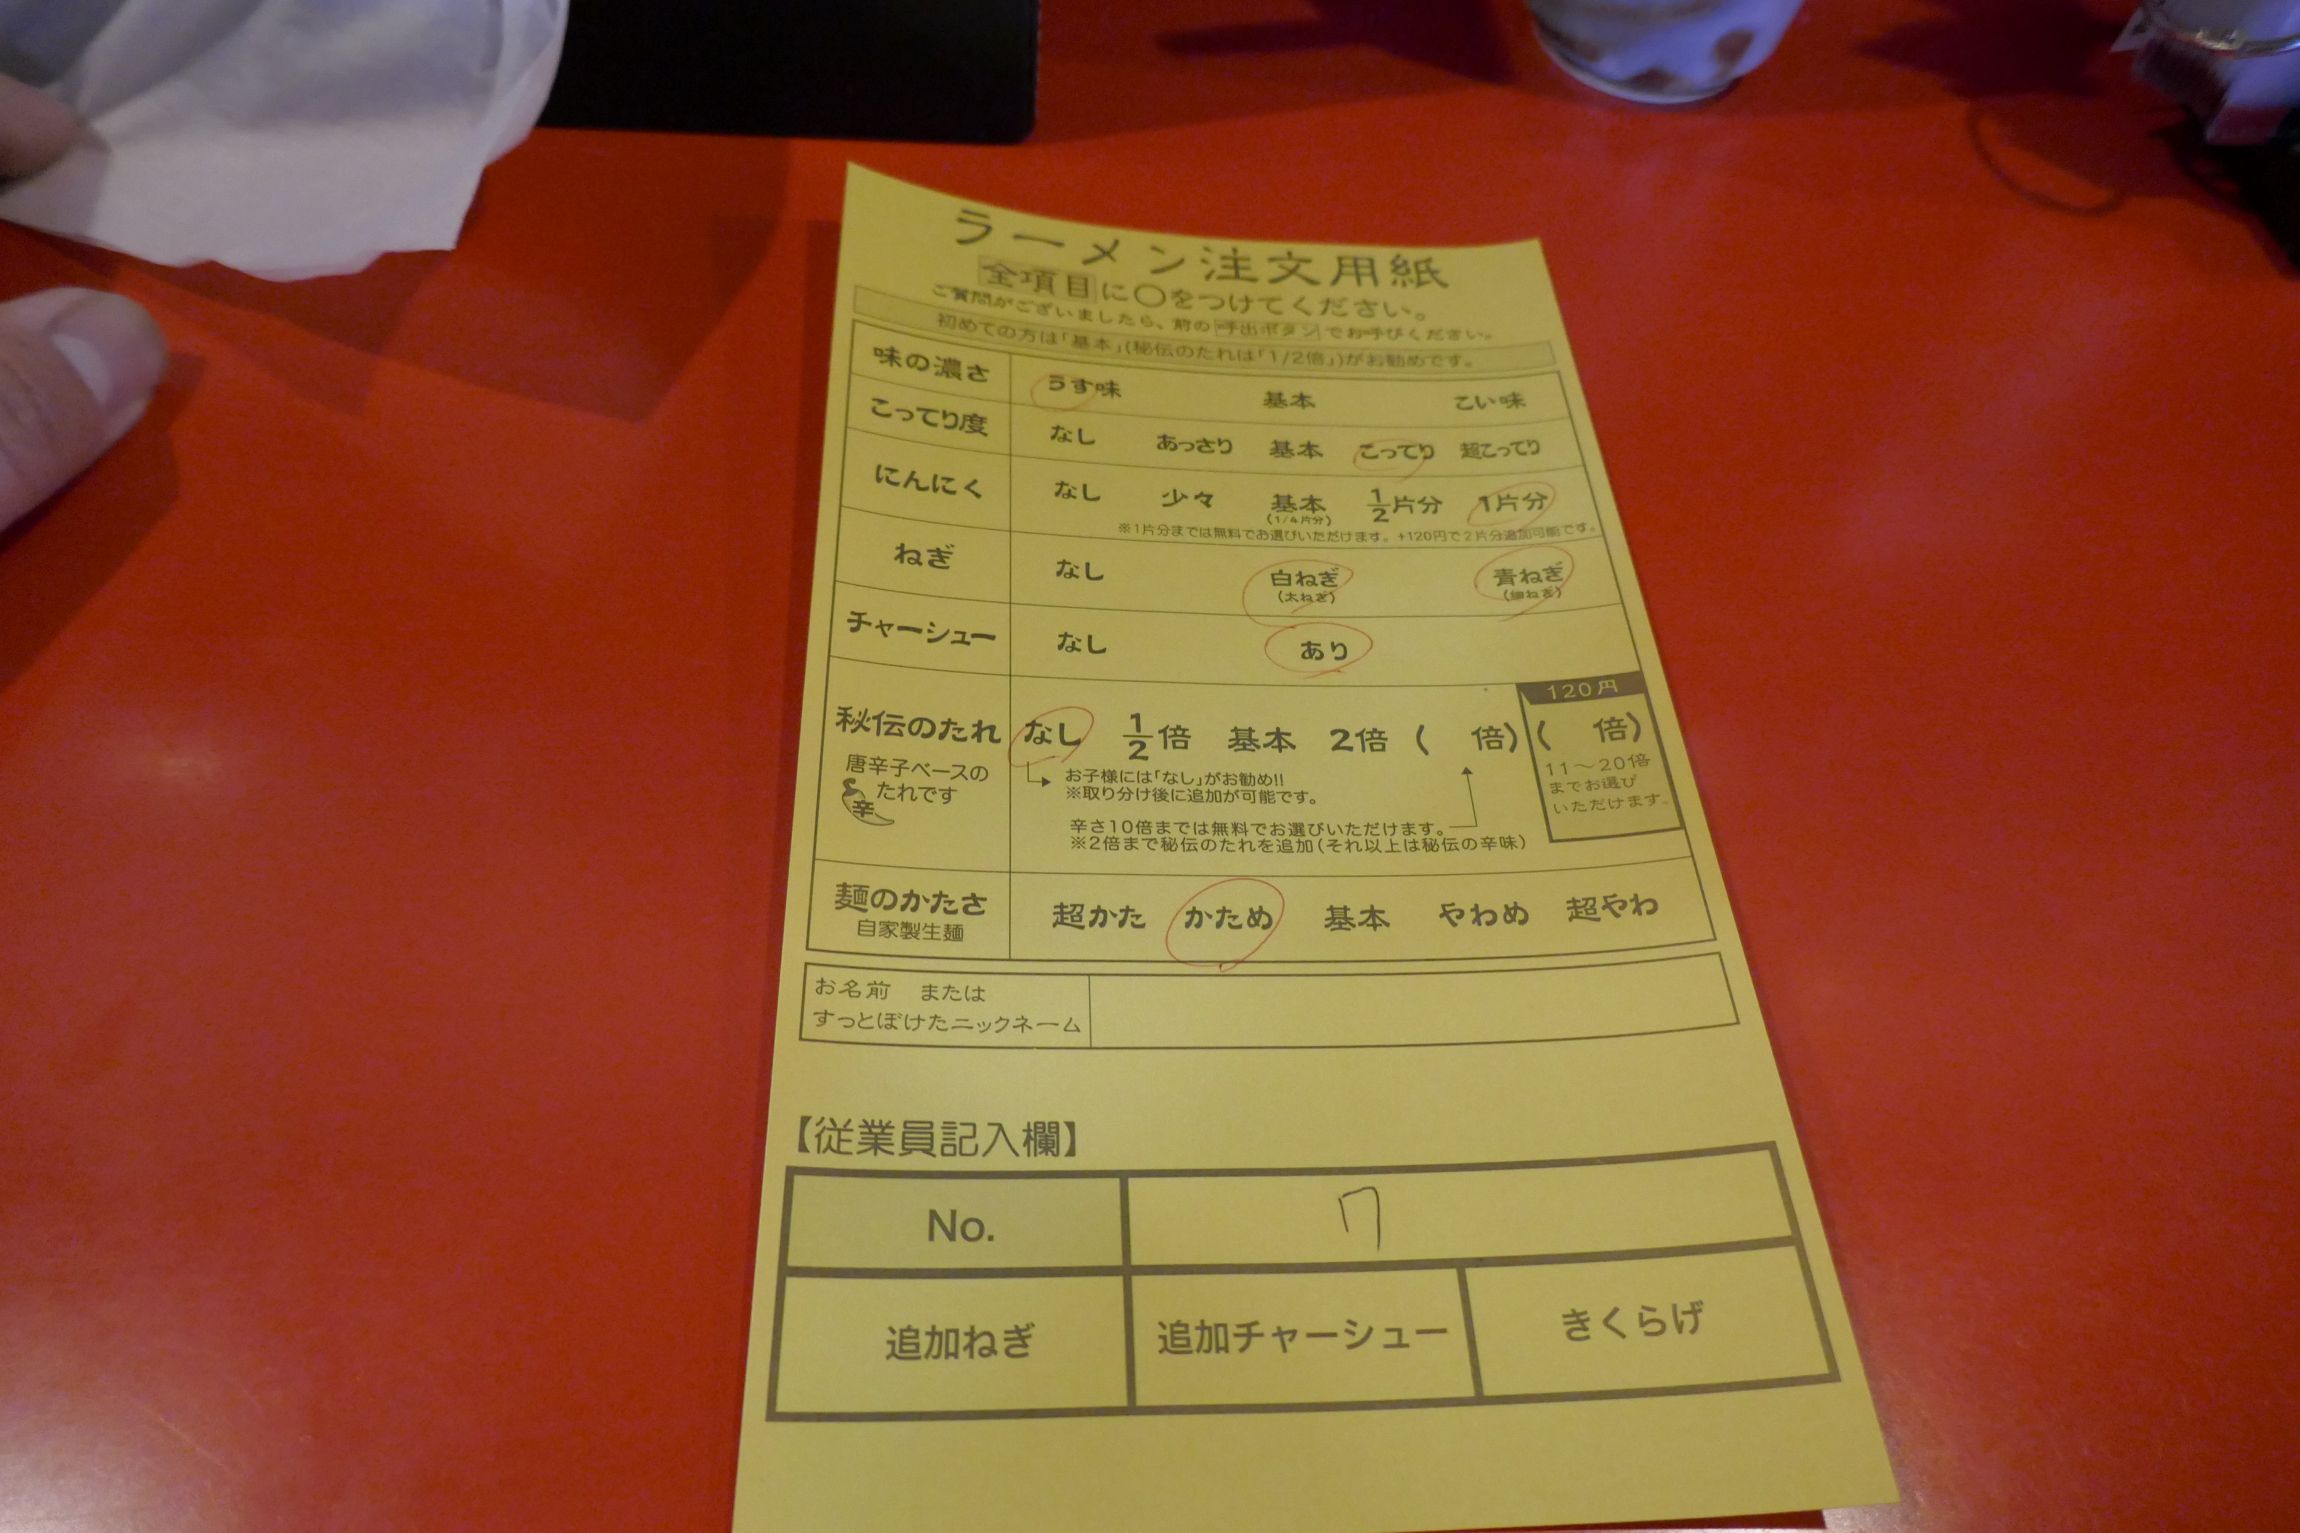 ラーメン注文用紙
全項目に○をつけてください。
ご質問がございましたら、前の呼出ボタンでお呼びください。
初めての方は「基本」(秘伝のたれは「1/2倍」)がお勧めです。
味の濃さ うす味 基本 こい味
こってり度 なし あっさり 基本 こってり 超こってり
にんにく なし 少々 基本 1/2片分 1片分
(1/4片分)
※1片分までは無料でお選びいただけます。+120円で2片分追加可能です。
ねぎ なし 白ねぎ 青ねぎ
(太ねぎ) (細ねぎ)
チャーシュー なし あり
120円
秘伝のたれ なし 1/2倍 基本 2倍 ( 倍) ( 倍)
唐辛子ベースの
たれです
辛
お子様には「なし」がお勧め!!
※取り分け後に追加が可能です。
辛さ10倍までは無料でお選びいただけます。
※2倍まで秘伝のたれを追加(それ以上は秘伝の辛味)
11〜20倍
までお選び
いただけます。
麺のかたさ 超かた かため 基本 やわめ 超やわ
自家製生麺
お名前 または
すっとぼけたニックネーム
【従業員記入欄】
No. 7
追加ねぎ 追加チャーシュー きくらげ